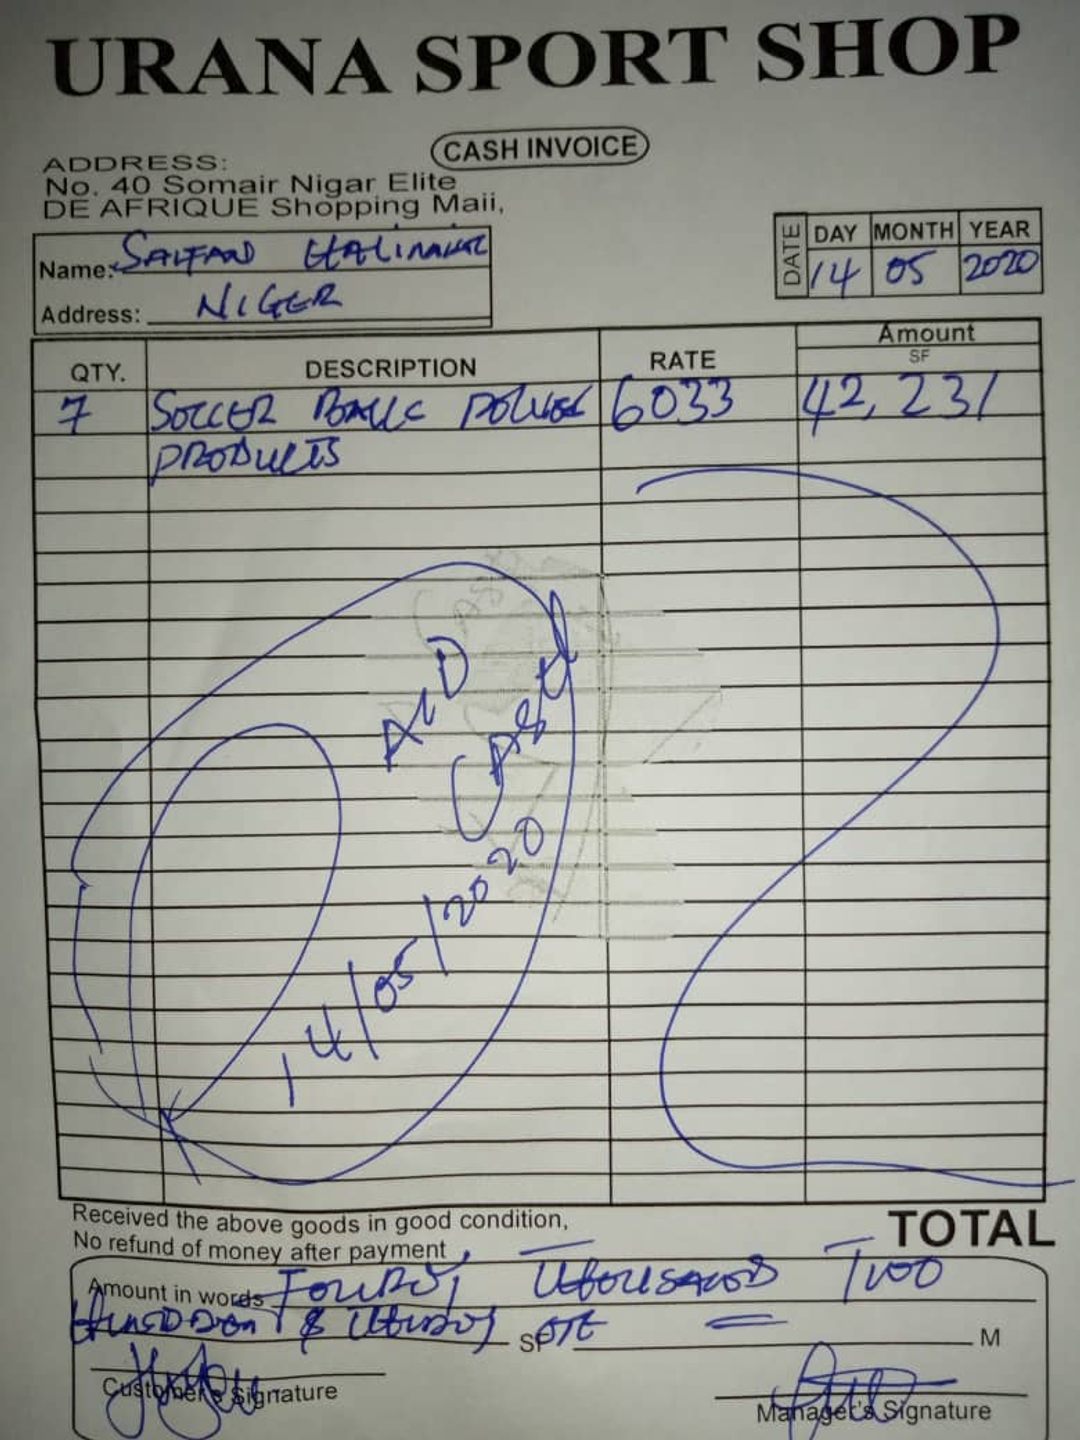 URANA SPORT SHOP
CASH INVOICE
ADDRESS:
No. 40 Somair Nigar Elite
DE AFRIQUE Shopping Maii,
Name:
Address: NIGER
DATE DAY MONTH YEAR
14 05 2020
QTY. DESCRIPTION RATE Amount
SF
7 SOCCER 6033 42,231
PRODUCTS
AID
CASH
14/05/2020
Received the above goods in good condition,
No refund of money after payment
TOTAL
Amount in words THOUSAND TWO
& SF M
Customer's Signature
Manager's Signature